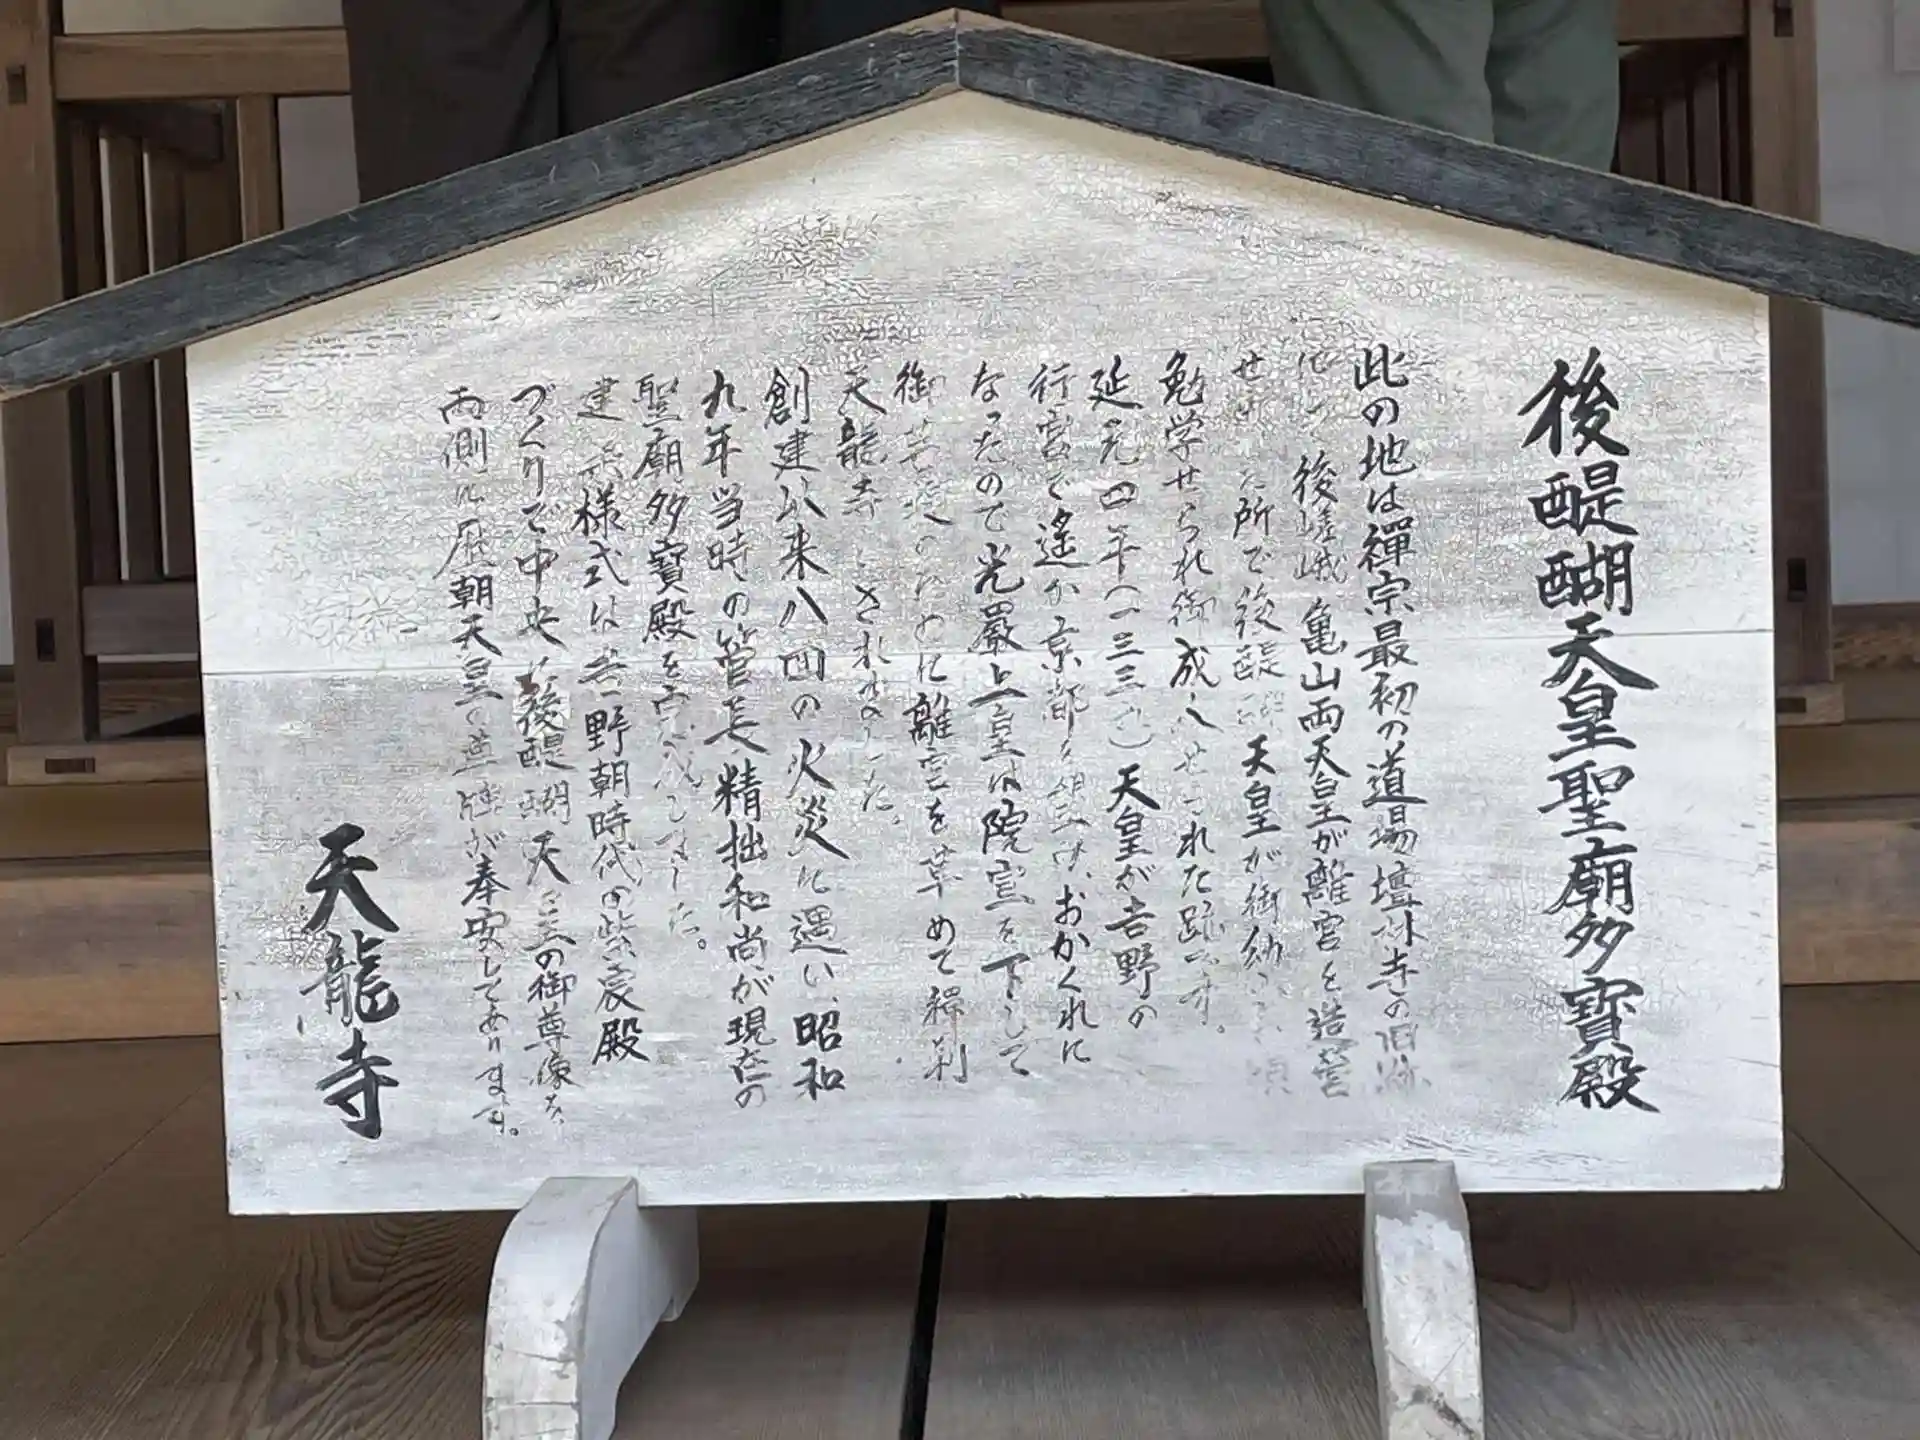 後醍醐天皇聖廟多寳殿
此の地は禪宗最初の道場壇林寺の旧跡
後嵯峨 亀山両天皇が離宮を造営
せ 所で後醍醐 天皇が御 頃
勉学せられ御成 せられた跡です。
延元四年（一三三九）天皇が吉野の
行宮で遙か京都を おかくれに
なったので光嚴上皇は院宣を下して
御 のために離宮を革めて禅刹
天龍寺とされました。
創建以来八回の火災に遇い、昭和
九年当時の管長精拙和尚が現在の
聖廟多寳殿を完成しました。
建 様式は吉野朝時代の紫宸殿
づくりで中央に後醍醐天皇の御尊像を、
両側に歴朝天皇の尊牌が奉安してあります。
天龍寺